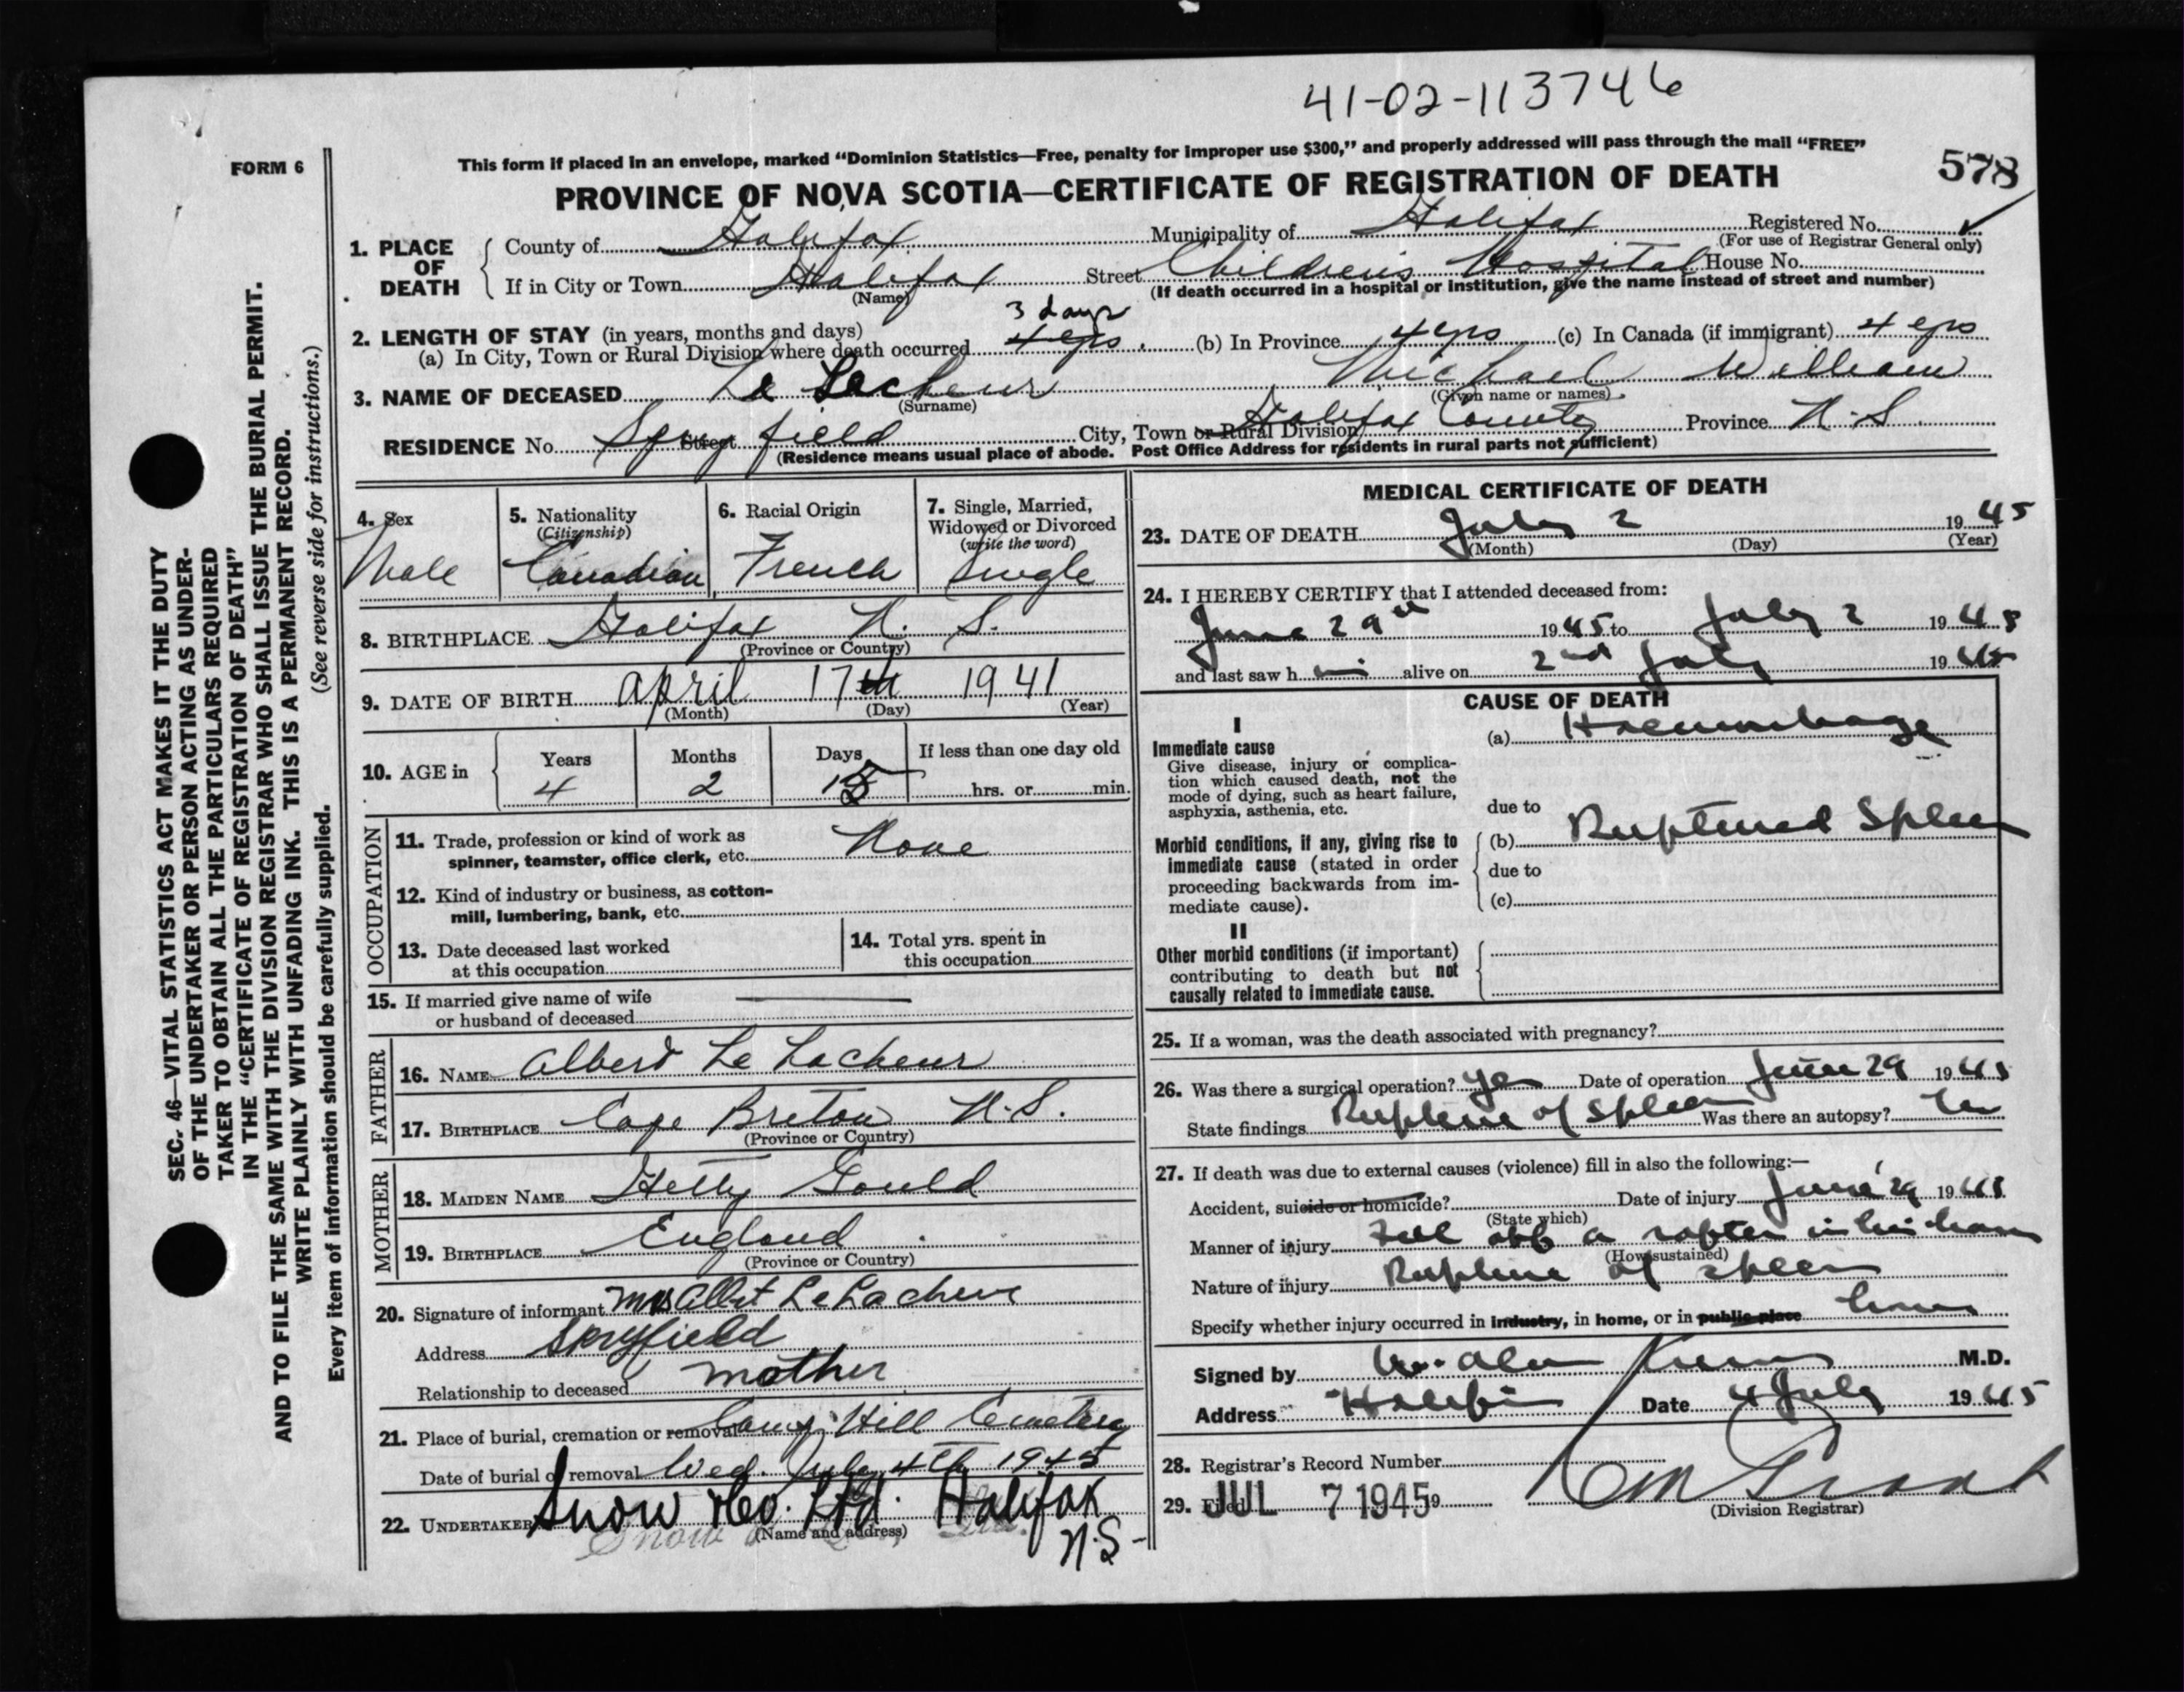 41-02-113746
FORM 6
This form if placed in an envelope, marked "Dominion Statistics—Free, penalty for improper use $300," and properly addressed will pass through the mail "FREE"
578
PROVINCE OF NOVA SCOTIA—CERTIFICATE OF REGISTRATION OF DEATH
SEC. 46—VITAL STATISTICS ACT MAKES IT THE DUTY
OF THE UNDERTAKER OR PERSON ACTING AS UNDER-
TAKER TO OBTAIN ALL THE PARTICULARS REQUIRED
IN THE "CERTIFICATE OF REGISTRATION OF DEATH"
AND TO FILE THE SAME WITH THE DIVISION REGISTRAR WHO SHALL ISSUE THE BURIAL PERMIT.
WRITE PLAINLY WITH UNFADING INK. THIS IS A PERMANENT RECORD.
Every item of information should be carefully supplied. (See reverse side for instructions.)
1. PLACE OF DEATH
County of Halifax Municipality of Halifax Registered No.
(For use of Registrar General only)
If in City or Town Halifax Street Children's Hospital House No.
(Name) (If death occurred in a hospital or institution, give the name instead of street and number)
2. LENGTH OF STAY (in years, months and days) 3 days
(a) In City, Town or Rural Division where death occurred 4 yrs. (b) In Province 4 yrs (c) In Canada (if immigrant) 4 yrs
3. NAME OF DECEASED Le Lacheur Michael William
(Surname) (Given name or names)
RESIDENCE No. Spryfield Street City, Town or Rural Division Halifax County Province N.S.
(Residence means usual place of abode. Post Office Address for residents in rural parts not sufficient)
4. Sex
Male
5. Nationality
(Citizenship)
Canadian
6. Racial Origin
French
7. Single, Married,
Widowed or Divorced
(write the word)
Single
8. BIRTHPLACE Halifax N. S.
(Province or Country)
9. DATE OF BIRTH April 17th 1941
(Month) (Day) (Year)
10. AGE in Years Months Days If less than one day old
4 2 15 hrs. or min.
OCCUPATION
11. Trade, profession or kind of work as
spinner, teamster, office clerk, etc. None
12. Kind of industry or business, as cotton-
mill, lumbering, bank, etc.
13. Date deceased last worked
at this occupation
14. Total yrs. spent in
this occupation
15. If married give name of wife
or husband of deceased
FATHER
16. NAME Albert Le Lacheur
17. BIRTHPLACE Cape Breton N.S.
(Province or Country)
MOTHER
18. MAIDEN NAME Hetty Gould
19. BIRTHPLACE England
(Province or Country)
20. Signature of informant Mrs Albert LeLacheur
Address Spryfield
Relationship to deceased mother
21. Place of burial, cremation or removal Camp Hill Cemetery
Date of burial or removal Wed. July 4th 1945
22. UNDERTAKER Snow & Co. Ltd. Halifax
(Name and address)
N.S-
MEDICAL CERTIFICATE OF DEATH
23. DATE OF DEATH July 2 1945
(Month) (Day) (Year)
24. I HEREBY CERTIFY that I attended deceased from:
June 29th 1945 to July 2 1945
and last saw him alive on 2nd July 1945
CAUSE OF DEATH
I
Immediate cause
Give disease, injury or complica-
tion which caused death, not the
mode of dying, such as heart failure,
asphyxia, asthenia, etc.
(a) Haemorrhage
due to
Morbid conditions, if any, giving rise to
immediate cause (stated in order
proceeding backwards from im-
mediate cause).
(b) Ruptured Spleen
due to
(c)
II
Other morbid conditions (if important)
contributing to death but not
causally related to immediate cause.
25. If a woman, was the death associated with pregnancy?
26. Was there a surgical operation? Yes Date of operation June 29 1945
State findings Rupture of Spleen Was there an autopsy?
27. If death was due to external causes (violence) fill in also the following:—
Accident, suicide or homicide? Date of injury June 29 1945
(State which)
Manner of injury Fell off a rafter in his home
(How sustained)
Nature of injury Rupture of spleen
Specify whether injury occurred in industry, in home, or in public place home
Signed by M.D.
Address Halifax Date 4 July 1945
28. Registrar's Record Number
29. Filed JUL 7 1945 19
(Division Registrar)